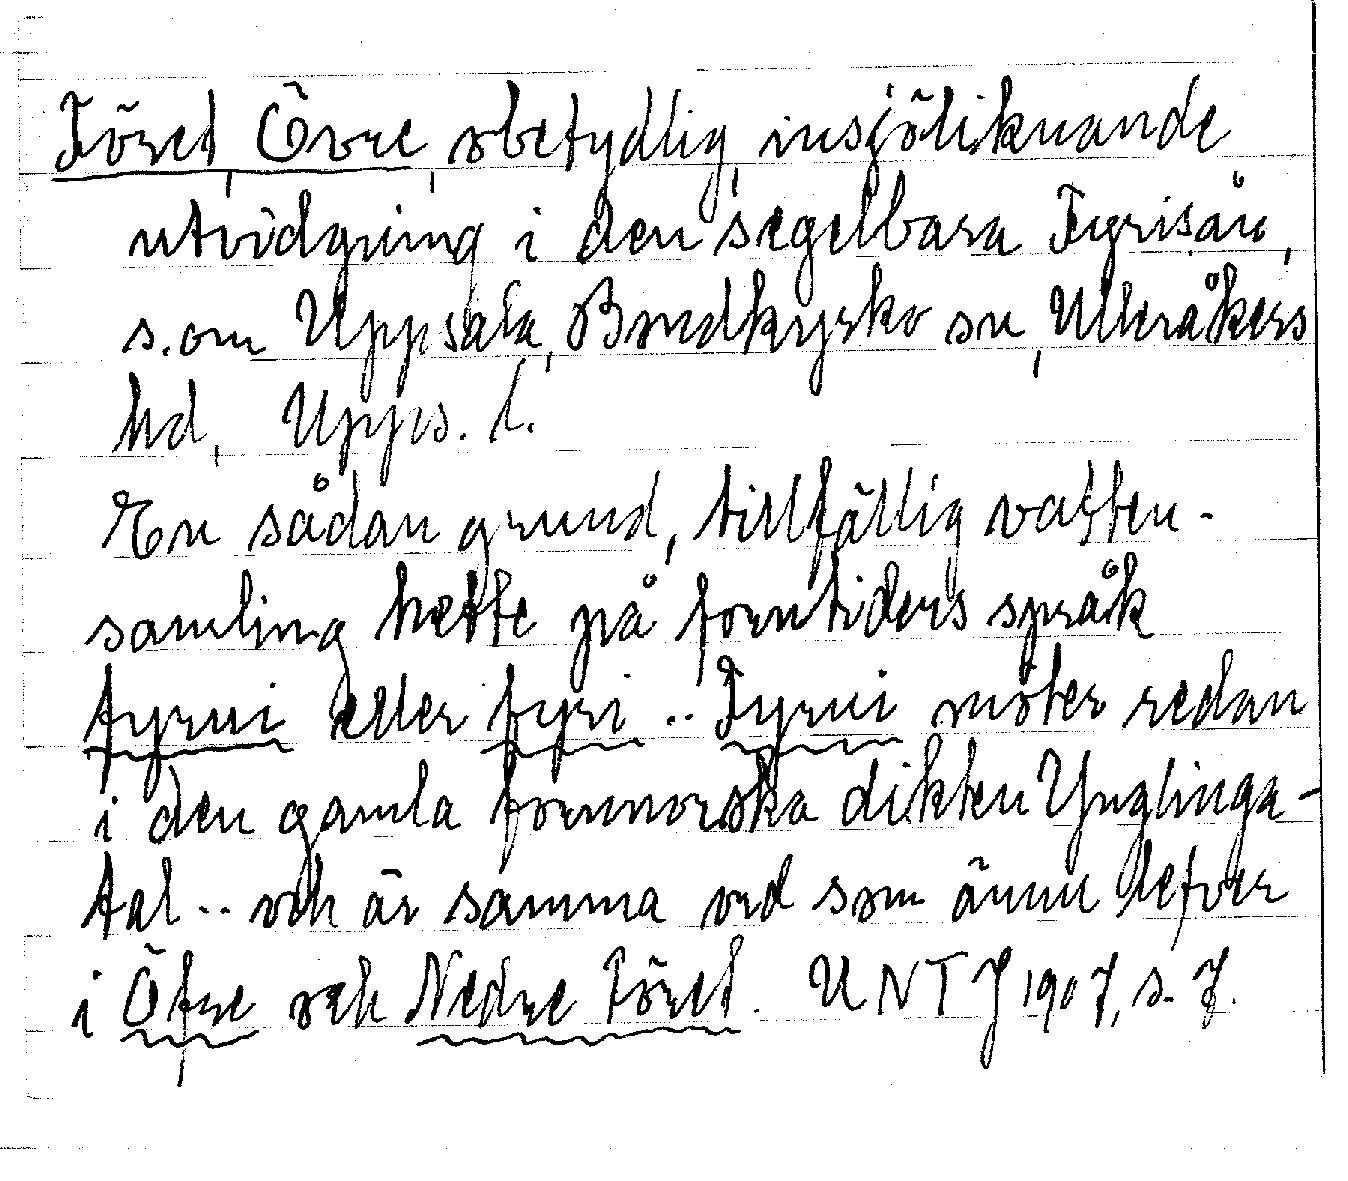 Föret, Övre, obetydlig, insjöliknande
utvidgning i den segelbara Fyrisån,
s. om Uppsala, Bondkyrko sn, Ulleråkers
hd, Upps. l.
En sådan grund, tillfällig vatten-
samling hette på forntiders språk
fyrui eller fyri .. Fyrui möter redan
i den gamla fornnorska dikten Ynglinga-
tal .. och är samma ord som ännu lefver
i Öfre och Nedre Föret. UNT J 1907, s. 7.